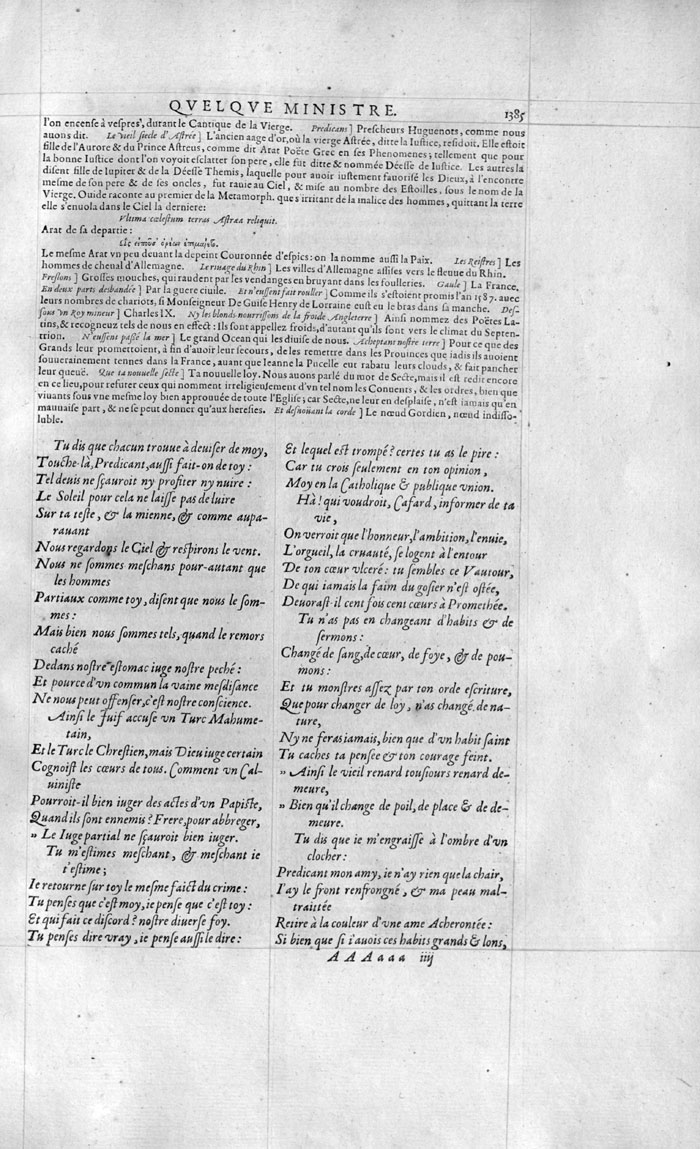 QVELQVE MINISTRE. 1385
l'on encense à vespres, durant le Cantique de la Vierge. Predicans] Prescheurs Huguenots, comme nous
auons dit. Le vieil siecle d'Astrée] L'ancien aage d'or, où la vierge Astrée, ditte la Iustice, residoit. Elle estoit
fille de l'Aurore & du Prince Astreus, comme dit Arat Poëte Grec en ses Phenomenes; tellement que pour
la bonne Iustice dont l'on voyoit esclatter son pere, elle fut ditte & nommée Déesse de Iustice. Les autres la
disent fille de Iupiter & de la Déesse Themis, laquelle pour auoir iustement fauorisé les Dieux, à l'encontre
mesme de son pere & de ses oncles, fut rauie au Ciel, & mise au nombre des Estoilles, sous le nom de la
Vierge. Ouide raconte au premier de la Metamorph. que s'irritant de la malice des hommes, quittant la terre
elle s'enuola dans le Ciel la derniere:
Vltima cælestum terras Astræa reliquit.
Arat de sa departie:
Le mesme Arat vn peu deuant la depeint Couronnée d'espics: on la nomme aussi la Paix. Les Reistres] Les
hommes de cheual d'Allemagne. Le riuage du Rhin] Les villes d'Allemagne assises vers le fleuue du Rhin.
Freslons] Grosses mouches, qui raudent par les vendanges en bruyant dans les foulleries. Gaule] La France.
En deux parts desbandée] Par la guerre ciuile. Et n'eussent fait rouller] Comme ils s'estoient promis l'an 1587. auec
leurs nombres de chariots, si Monseigneur De Guise Henry de Lorraine eust eu le bras dans sa manche. Des-
sous vn Roy mineur] Charles IX. Ny les blonds nourrissons de la froide Angleterre] Ainsi nommez des Poëtes La-
tins, & recogneuz tels de nous en effect: Ils sont appellez froids, d'autant qu'ils sont vers le climat du Septen-
trion. N'eussent passé la mer] Le grand Ocean qui les diuise de nous. Acheptant nostre terre] Pour ce que des
Grands leur promettoient, à fin d'auoir leur secours, de les remettre dans les Prouinces que iadis ils auoient
souuerainement tennes dans la France, auant que Ieanne la Pucelle eut rabatu leurs clouds, & fait pancher
leur queuë. Que ta nouuelle secte] Ta nouuelle loy. Nous auons parlé du mot de Secte, mais il est redit encore
en ce lieu, pour refuter ceux qui nomment irreligieusement d'vn tel nom les Conuents, & les ordres, bien que
viuants sous vne mesme loy bien approuuée de toute l'Eglise; car Secte, ne leur en desplaise, n'est iamais qu'en
mauuaise part, & ne se peut donner qu'aux heresies. Et desnoüant la corde] Le nœud Gordien, nœud indisso-
luble.
Tu dis que chacun trouue à deuiser de moy,
Touche-là, Predicant, aussi fait-on de toy:
Tel deuis ne sçauroit ny profiter ny nuire:
Le Soleil pour cela ne laisse pas de luire
Sur ta teste, & la mienne, & comme aupa-
rauant
Nous regardons le Ciel & respirons le vent.
Nous ne sommes meschans pour-autant que
les hommes
Partiaux comme toy, disent que nous le som-
mes:
Mais bien nous sommes tels, quand le remors
caché
Dedans nostre estomac iuge nostre peché:
Et pource d'vn commun la vaine mesdisance
Ne nous peut offenser, c'est nostre conscience.
Ainsi le Juif accuse vn Turc Mahume-
tain,
Et le Turc le Chrestien, mais Dieu iuge certain
Cognoist les cœurs de tous. Comment vn Cal-
uiniste
Pourroit-il bien iuger des actes d'vn Papiste,
Quand ils sont ennemis? Frere, pour abbreger,
» Le Iuge partial ne sçauroit bien iuger.
Tu m'estimes meschant, & meschant ie
t'estime;
Ie retourne sur toy le mesme faict du crime:
Tu penses que c'est moy, ie pense que c'est toy:
Et qui fait ce discord? nostre diuerse foy.
Tu penses dire vray, ie pense aussi le dire:
Et lequel est trompé? certes tu as le pire:
Car tu crois seulement en ton opinion,
Moy en la Catholique & publique vnion.
Hà! qui voudroit, Cafard, informer de ta
vie,
On verroit que l'honneur, l'ambition, l'enuie,
L'orgueil, la cruauté, se logent à l'entour
De ton cœur vlceré: tu sembles ce Vautour,
De qui iamais la faim du gosier n'est ostée,
Deuorast-il cent fois cent cœurs à Promethée.
Tu n'as pas en changeant d'habits & de
sermons:
Changé de sang, de cœur, de foye, & de pou-
mons:
Et tu monstres assez par ton orde escriture,
Que pour changer de loy, n'as changé de na-
ture,
Ny ne feras iamais, bien que d'vn habit saint
Tu caches ta pensée & ton courage feint.
» Ainsi le vieil renard tousiours renard de-
meure,
» Bien qu'il change de poil, de place & de de-
meure.
Tu dis que ie m'engraisse à l'ombre d'vn
clocher:
Predicant mon amy, ie n'ay rien que la chair,
I'ay le front renfrongné, & ma peau mal-
traittée
Retire à la couleur d'vne ame Acherontée:
Si bien que si i'auois ces habits grands & lons,
AAAaaa iiij